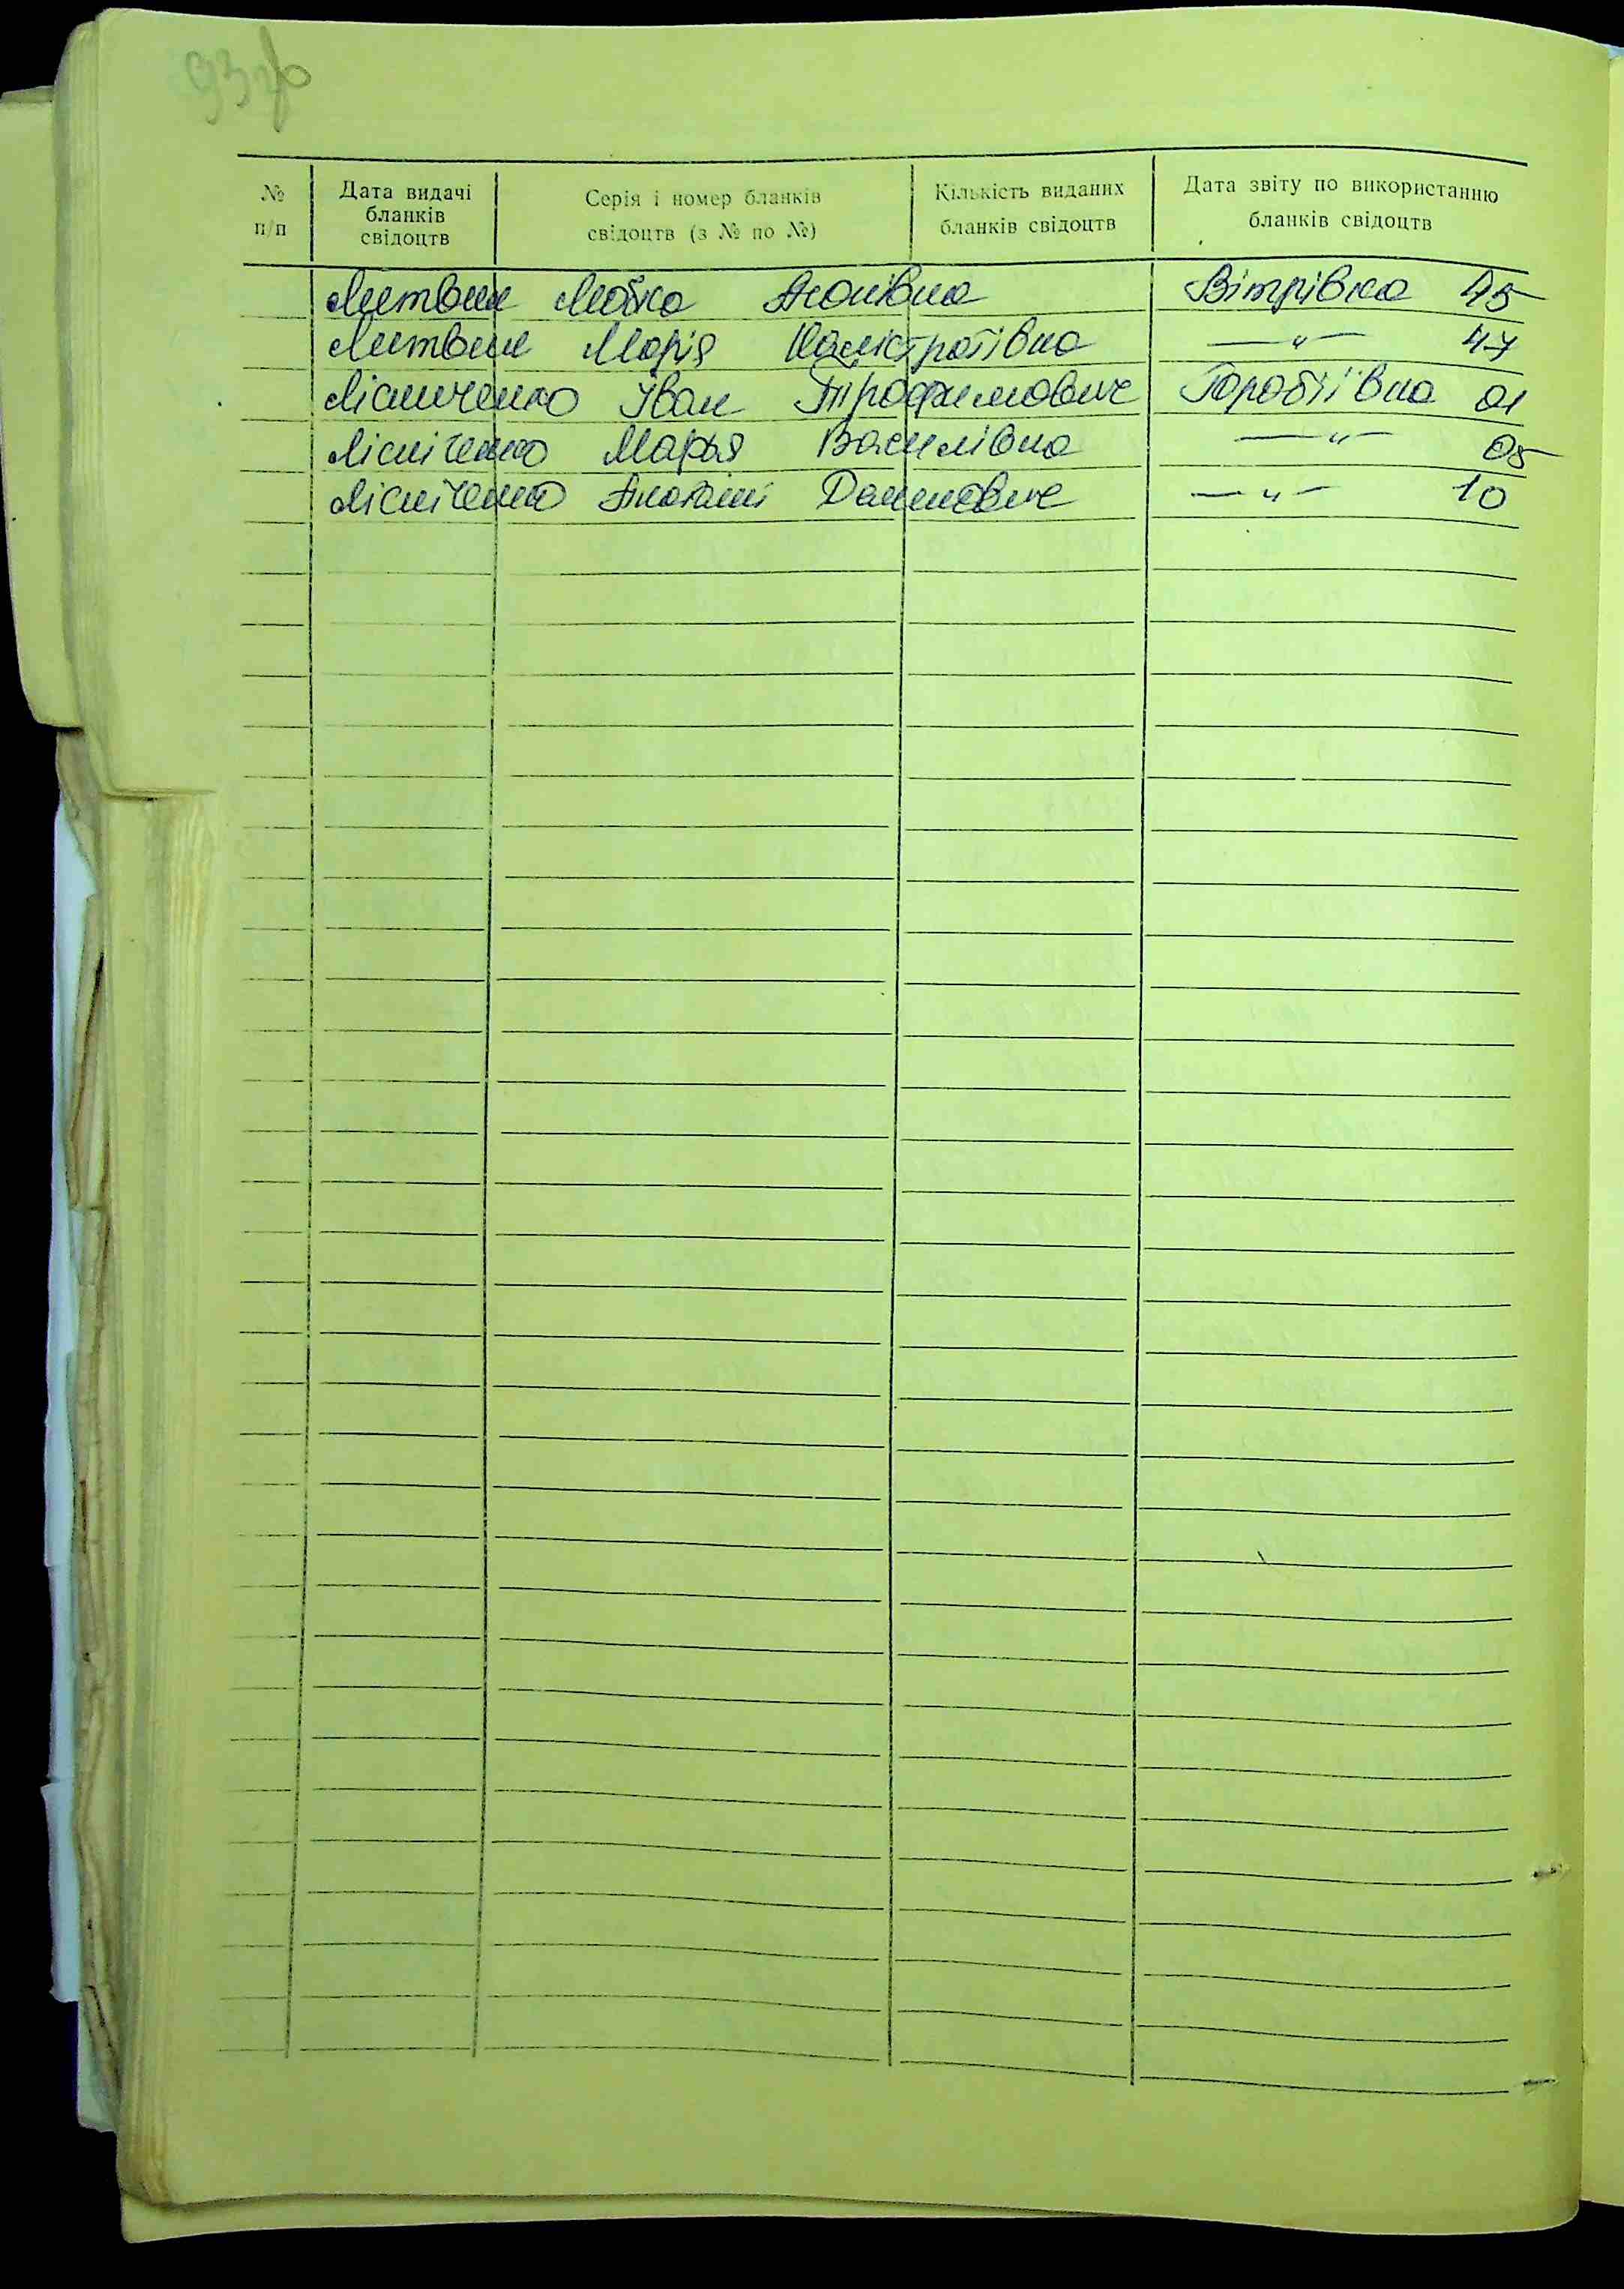 93зв
№ п/п Дата видачі бланків свідоцтв Серія і номер бланків свідоцтв (з № по №) Кількість виданих бланків свідоцтв Дата звіту по використанню бланків свідоцтв
Литвин Вітрівка 45
Литвин Марія Калістратівна —„— 47
Лісниченко Іван Трофимович Горобіївка 01
Лісніченко Марья Василівна —„— 05
Лісніченко Данилович —„— 10